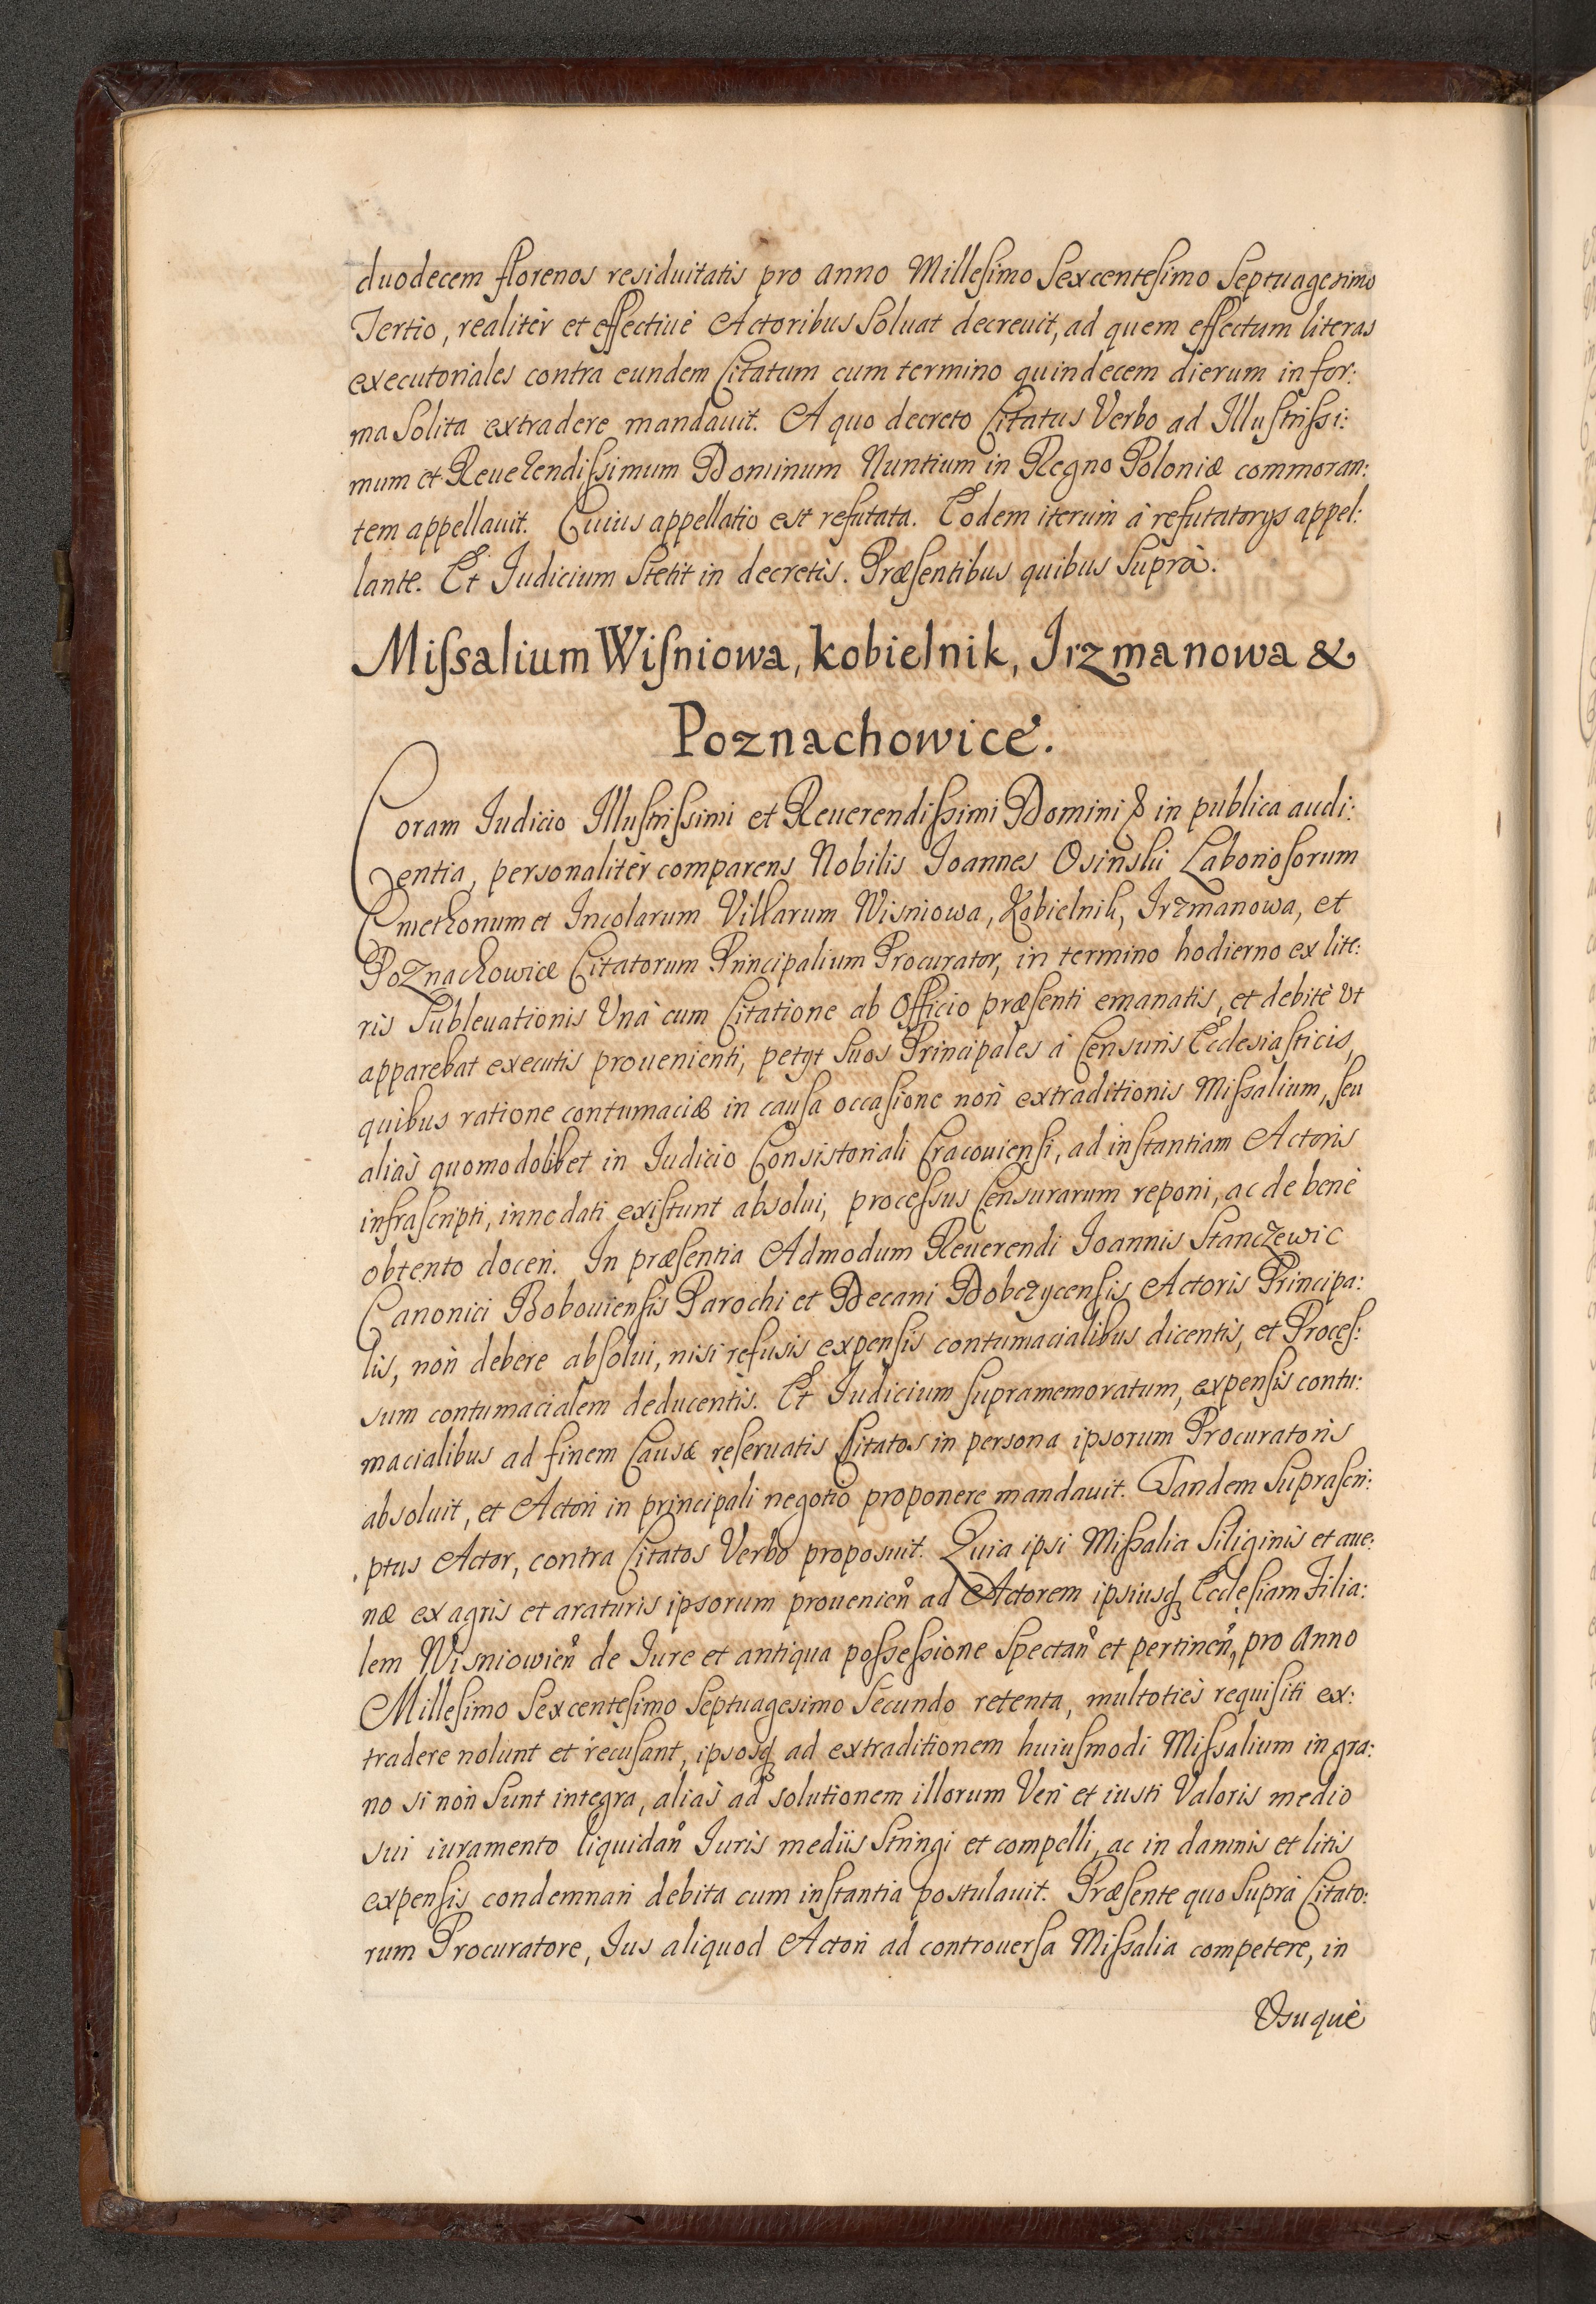 duodecem florenos residuitatis pro anno Millesimo Sexcentesimo Septuagesimo
Tertio, realitèr et effectiuè Actoribus Soluat decreuit, ad quem effectum literas
executoriales contra eundem Citatum cum termino quindecem dierum in for:
ma Solita extradere mandauit. A quo decreto Citatus Verbo ad Illustrissi:
mum et Reuerendissimum Dominum Nuntium in Regno Poloniæ commoran:
tem appellauit. Cuius appellatio est refutata. Eodem iterum à refutatorys appel:
lante. Et Judicium Stetit in decretis. Præsentibus quibus Suprà.
Missalium Wisniowa, kobielnik, Jrzmanowa &
Poznachowice.
Coram Judicio Illustrissimi et Reuerendissimi Domini & in publica audi:
entia, personalitèr comparens Nobilis Joannes Osinski Laboriosorum
Cmethonum et Incolarum Villarum Wisniowa, Kobielnik, Jrzmanowa, et
Poznachowice Citatorum Principalium Procurator, in termino hodierno ex lite:
ris Subleuationis Vnà cum Citatione ab Officio præsenti emanatis, et debitè Vt
apparebat executis prouenienti, petyt Suos Principales à Censuris Ecclesiasticis,
quibus ratione contumaciæ in causa occasione non extraditionis Missalium, seu
aliàs quomodolibet in Judicio Consistoriali Cracouiensi, ad instantiam Actoris
infrascripti, innodati existunt absolui, processus Censurarum reponi, ac de benè
obtento doceri. In præsentia Admodum Reuerendi Joannis Stanczewic
Canonici Bobouiensis Parochi et Decani Dobczycensis Actoris Principa:
lis, non debere absolui, nisi refusis expensis contumacialibus dicentis, et Proces:
sum contumacialem deducentis. Et Judicium supramemoratum, expensis contu:
macialibus ad finem Causæ reseruatis Citatos in persona ipsorum Procuratoris
absoluit, et Actori in principali negotio proponere mandauit. Tandem Suprascri:
ptus Actor, contra Citatos Verbo proposuit. Quia ipsi Missalia Siliginis et aue:
næ ex agris et araturis ipsorum prouenień ad Actorem ipsiusq₃ Ecclesiam Filia:
lem Wisniowień de Jure et antiqua possessione Spectań et pertineń, pro Anno
Millesimo Sexcentesimo Septuagesimo Secundo retenta, multotiès requisiti ex:
tradere nolunt et recusant, ipsosq₃ ad extraditionem huiusmodi Missalium in gra:
no si non Sunt integra, aliàs ad solutionem illorum Veri et iusti Valoris medio
sui iuramento liquidań Juris mediis Stringi et compelli, ac in damnis et litis
expensis condemnari debita cum instantia postulauit. Præsente quo Suprà Citato:
rum Procuratore, Jus aliquod Actori ad controuersa Missalia competere, in
Vsuquè